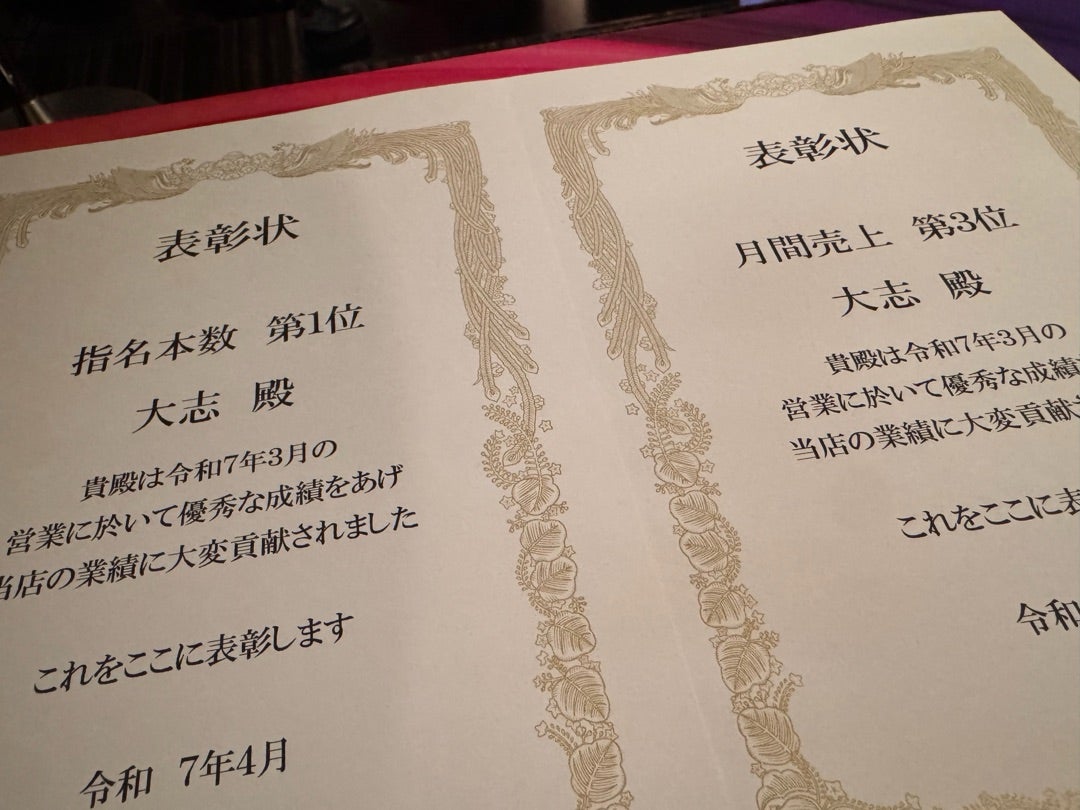 表彰状
指名本数 第1位
大志 殿
貴殿は令和7年3月の
営業に於いて優秀な成績をあげ
当店の業績に大変貢献されました
これをここに表彰します
令和 7年4月
表彰状
月間売上 第3位
大志 殿
貴殿は令和7年3月の
営業に於いて優秀な成績
当店の業績に大変貢献
これをここに表
令和